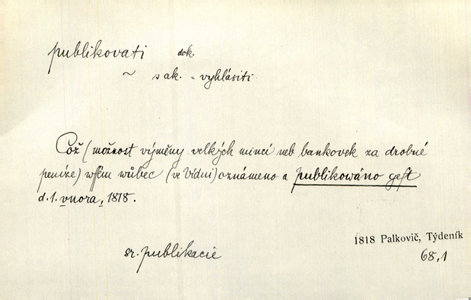 publikovati dok.
~ s ak. - vyhlásiti
Což (možnost výměny velkých mincí neb bankovek za drobné
peníze) wssem wůbec (ve Vídni) oznámeno a publikowáno gest
d. 1. února, 1818.
sr. publikacie
1818 Palkovič, Týdeník
68,1